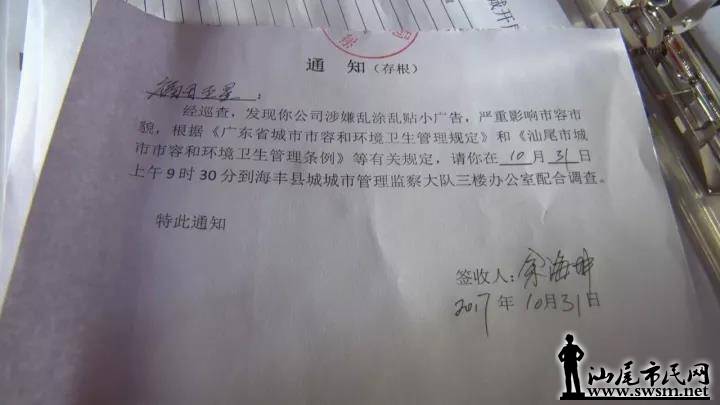 城开
通 知（存根）
：
经巡查，发现你公司涉嫌乱涂乱贴小广告，严重影响市容市
貌，根据《广东省城市市容和环境卫生管理规定》和《汕尾市城
市市容和环境卫生管理条例》等有关规定，请你在10月31日
上午9时30分到海丰县城城市管理监察大队三楼办公室配合调查。
特此通知
签收人：余海坤
2017年10月31日
汕尾市民网
www.swsm.net